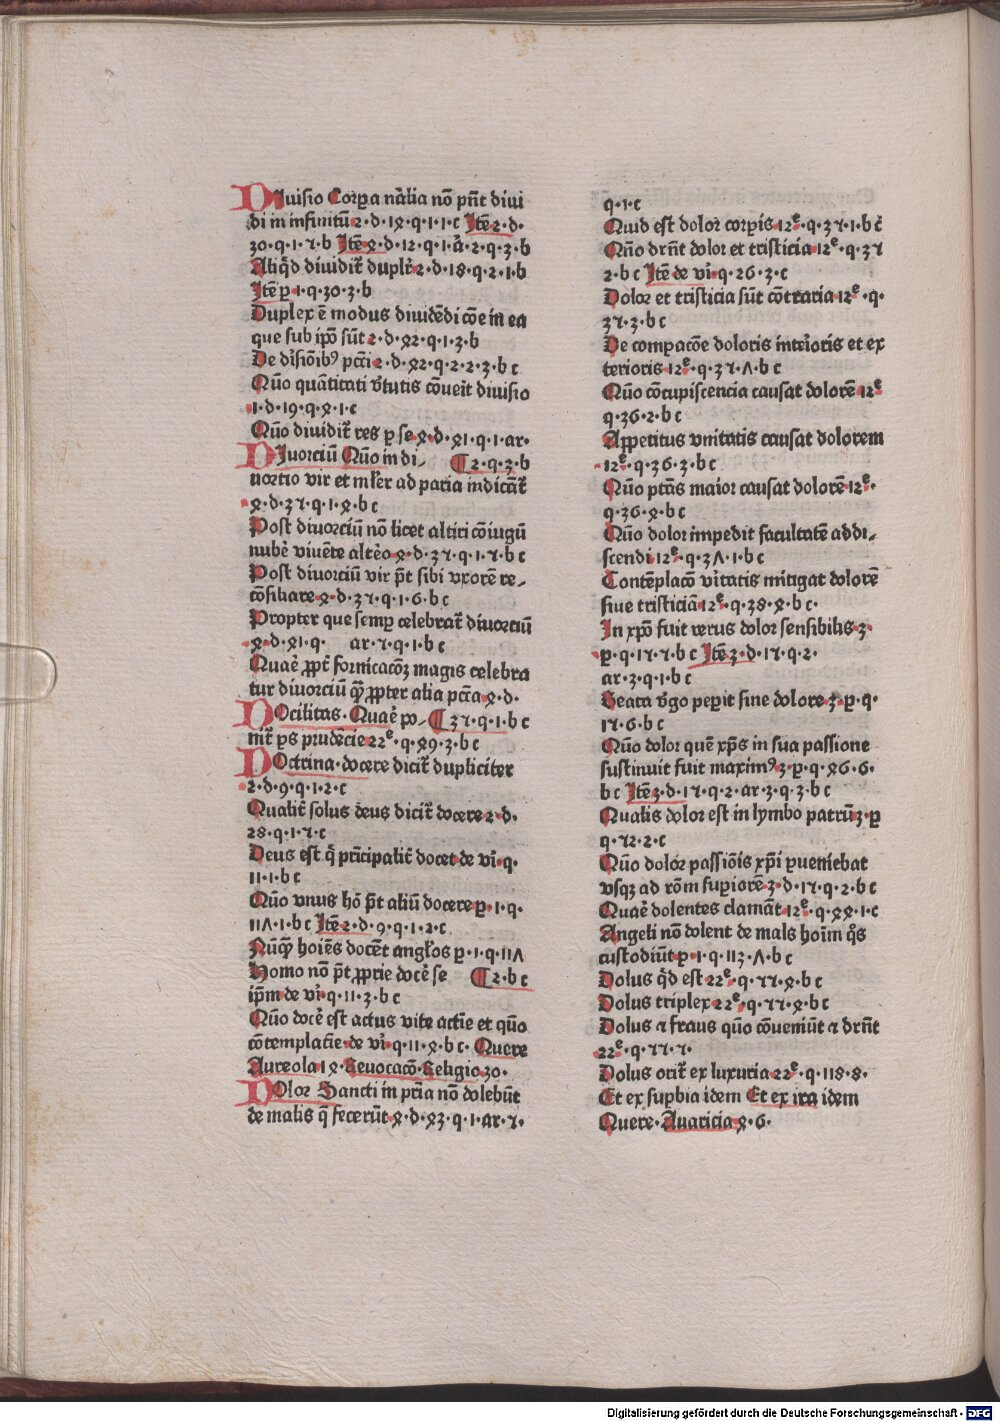 Diuisio Corꝑa nãlia nõ pñt diui
di in infinitũ 2·d·1ꝝ·q·1·1·c Itẽ 2·d·
30·q·1·7·b Itẽ ꝝ·d·12·q·1·ã·2·q·3·b
Aliq̃d diuidit᷑ duplr̃ 2·d·18·q·2·1·b
Itẽ ꝑ·1·q·30·3·b
Duplex ẽ modus diuidẽdi cõe in ea
que sub ip̃o sũt 2·d·ꝝ2·q·1·3·b
De dĩsiõib⁹ pctĩ 2·d·ꝝ2·q·2·2·3·b c
Qũo quãtitati v̾tutis cõueĩt diuisio
1·d·19·q·ꝝ·1·c
Qũo diuidit᷑ res ꝑ se ꝝ·d·ꝝ1·q·1·ar·
Diuorciũ Qũo in di⸗ ¶ 2·q·3·b
uortio vir et mĩer ad paria indicãt᷑
ꝝ·d·37·q·1·ꝝ·b c
Post diuorciũ nõ licet alt̃i cõiugũ
nubẽ viuẽte altẽo ꝝ·d·37·q·1·7·b c
Post diuorciũ vir p̃t sibi vxorẽ re⸗
cõsiliare ꝝ·d·37·q·1·6·b c
Propter que semꝑ celebrat᷑ diuorciũ
ꝝ·d·ꝝ1·q· ar·7·q·1·b c
Quaẽ ꝓpt̃ fornicacõꝫ magis celebra
tur diuorciũ q̃ꝫ ꝓpter alia pctã ꝝ·d·
Docilitas·Quaẽ po⸗ ¶ 37·q·1·b c
nit᷑ ꝑs prudẽcie 22ᵉ·q·ꝝ9·3·b c
Doctrina·docere dicit᷑ dupliciter
2·d·9·q·1·2·c
Qualit̃ solus deus dicit᷑ docere 2·d·
28·q·1·7·c
Deus est q̃ prĩcipalit̃ docet de vĩ·q·
11·1·b c
Qũo vnus hõ p̃t aliũ docere ꝑ·1·q·
11ʌ·1·b c Itẽ 2·d·9·q·1·2·c
Nũq̃ꝫ hoĩes docẽt angl̃os ꝑ·1·q·11ʌ
Homo nõ p̃t ꝓprie docẽ se ¶ 2·b c
ip̃m de vĩ·q·11·3·b c
Qũo docẽ est actus vite actĩe et qũo
cõtemplatĩe·de vĩ·q·11·ꝝ·b c· Quere
Aureola 1ꝝ·Reuocacõ·Religio 30·
Dolor Sancti in pr̃ia nõ dolebũt
de malis q̃ fecerũt ꝝ·d·ꝝ3·q·1·ar·7·
q·1·c
Quid est dolor corꝑis 12ᵉ·q·37·1·b c̃
Qũo drñt dolor et tristicia 12ᵉ·q·37
2·b c Itẽ de vĩ·q·26·3·c
Dolor et tristicia sũt cõtraria 12ᵉ·q·
37·3·b c
De compacõe doloris intẽioris et ex
terioris 12ᵉ·q·37·ʌ·b c
Qũo cõcupiscencia causat dolorẽ 12ᵉ
q·36·2·b c
Appetitus vnitatis causat dolorem
12ᵉ·q·36·3·b c
Qũo ptãs maior causat dolorẽ 12ᵉ·
q·36·ꝝ·b c
Qũo dolor impedit facultatẽ addi⸗
scendi 12ᵉ·q·3ʌ·1·b c
Contẽplacõ vĩtatis mitigat dolorẽ
siue tristiciã 12ᵉ·q·38·ꝝ·b c·
In xp̃o fuit verus dolor sensibilis 3·
ꝑ·q·17·7·b c Itẽ 3·d·17·q·2·
ar·3·q·1·b c
Beata v̾go peꝑit sine dolore 3·ꝑ·q·
17·6·b c
Qũo dolor quẽ xp̃s in sua passione
sustinuit fuit maxim⁹ 3·ꝑ·q·ꝝ6·6·
b c Itẽ 3·d·17·q·2·ar·3·q·3·b c
Qualis dolor est in lymbo patrũ 3·ꝑ
q·72·2·c
Qũo dolor passiõis xp̃i ꝑueniebat
vsqꝫ ad rõm suꝑiorẽ 3·d·17·q·2·b c
Quaẽ dolentes clamãt 12ᵉ·q·ꝝꝝ·1·c
Angeli nõ dolent de mal̃s hoĩm q̃s
custodiũt ꝑ·1·q·113·ʌ·b c
Dolus q̃d est 22ᵉ·q·77·ꝝ·b c
Dolus triplex 22ᵉ·q·77·ꝝ·b c
Dolus ⁊ fraus qũo cõueniũt ⁊ drñt
22ᵉ·q·77·7·
Dolus orit᷑ ex luxuria 22ᵉ·q·118·8·
Et ex suꝑbia idem Et ex ira idem
Quere·Auaricia ꝝ·6·
Digitalisierung gefördert durch die Deutsche Forschungsgemeinschaft - DFG